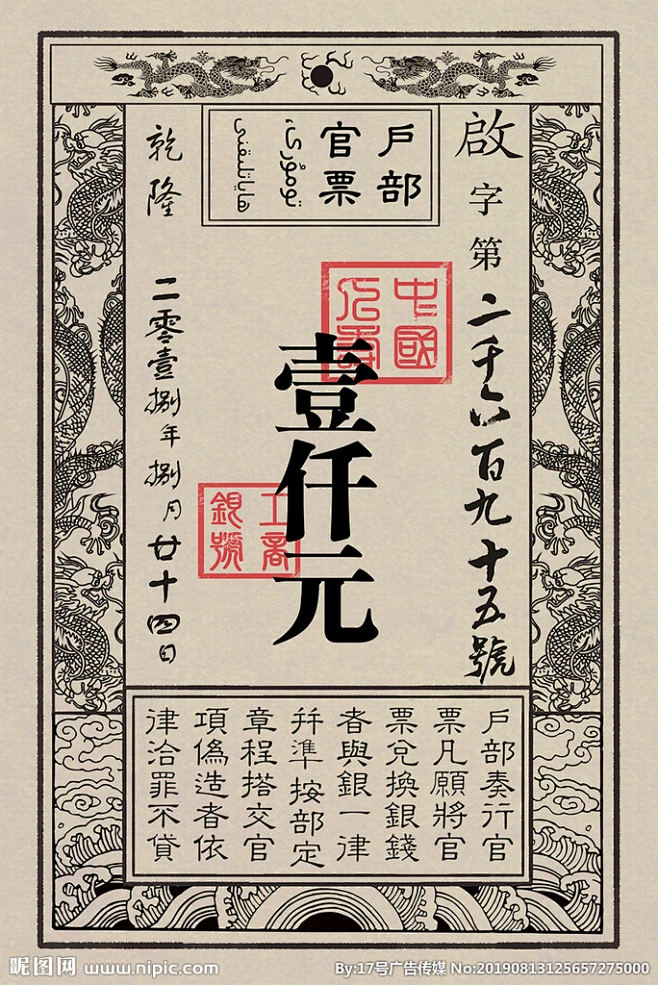 戶部
官票
啟字第二千六百九十五號
中國
工商
銀號
壹仟元
乾隆
二零壹捌年捌月廿十四日
戶部奏行官
票凡願將官
票兌換銀錢
者與銀一律
并準按部定
章程搭交官
項偽造者依
律治罪不貸
昵图网 www.nipic.com
By:17号广告传媒 No:20190813125657275000